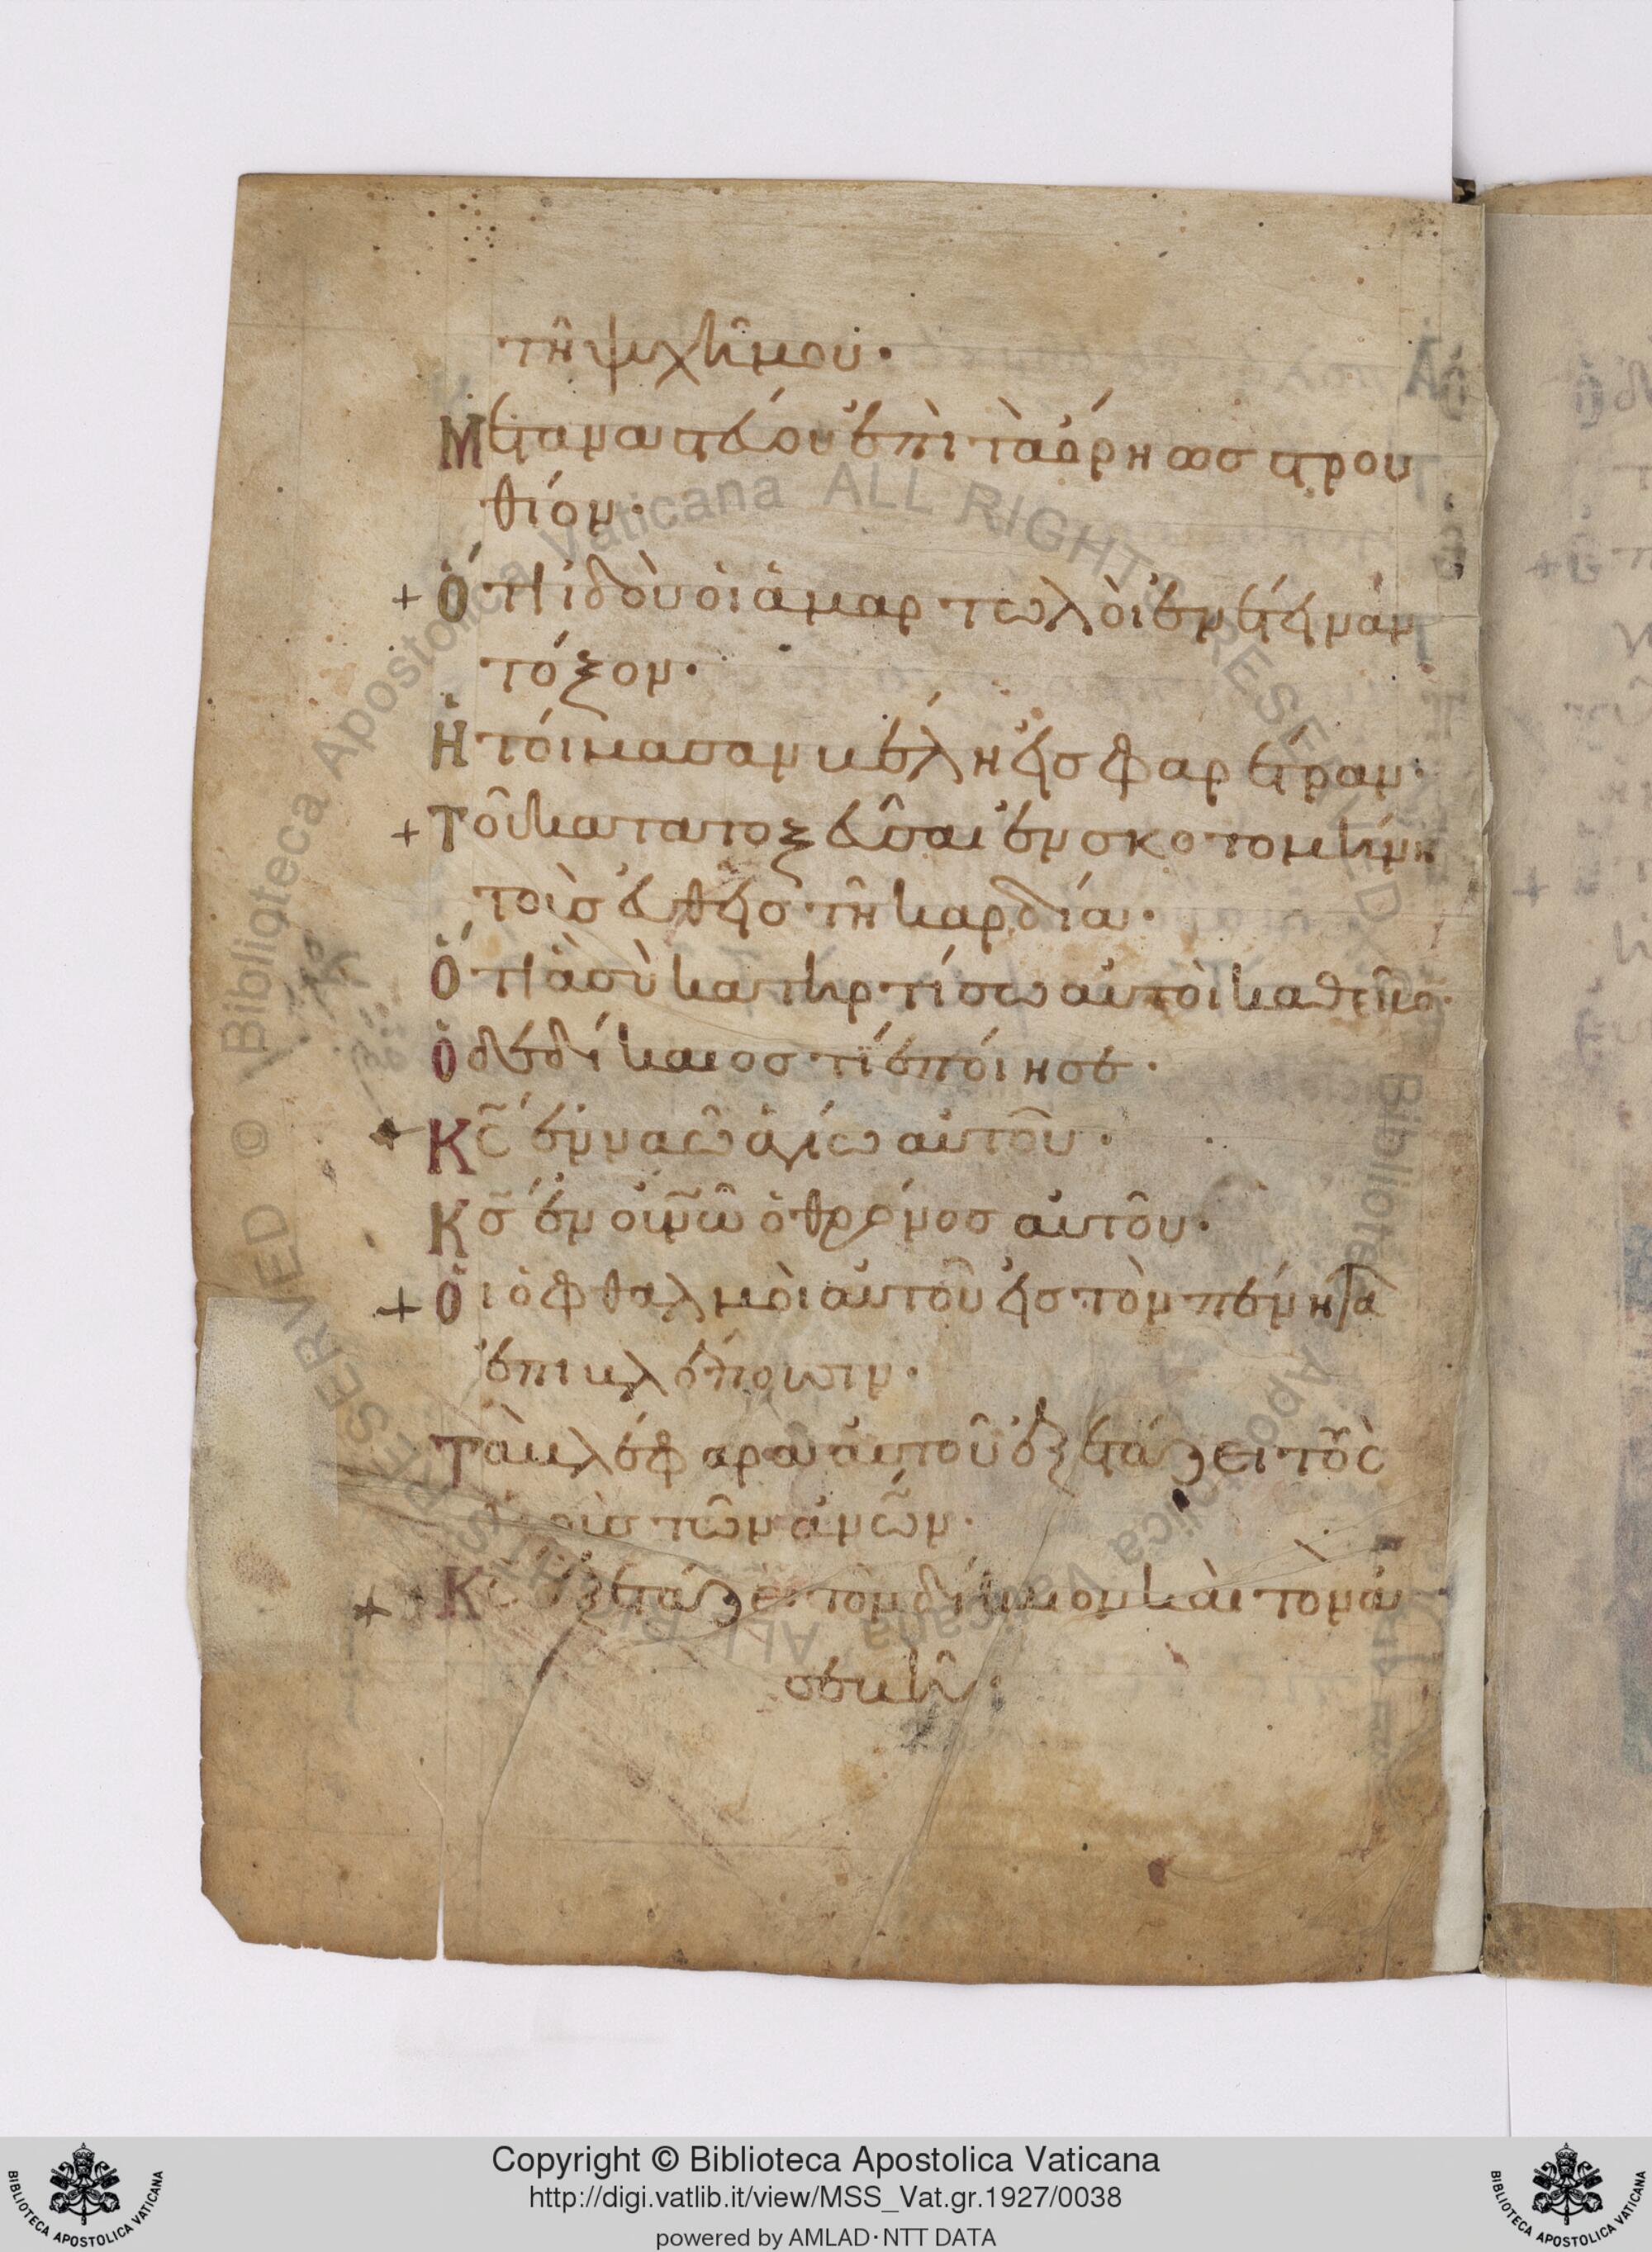 τῆ ψυχῆ μου·
Μεταναστεύου ἐπὶ τὰ ὄρη ὡς στρου
θίον·
+ Ὅτι ἰδοὺ οἱ ἁμαρτωλοὶ ἐνέτειναν
τόξον·
Ἡτοίμασαν βέλη εἰς φαρέτραν·
+ Τοῦ κατατοξεῦσαι ἐν σκοτομήνη
τοὺς εὐθεῖς τῆ καρδία·
Ὅτι ἃ σὺ κατηρτίσω αὐτοὶ καθεῖλο·
Ὁ δὲ δίκαιος τί ἐποίησε·
+ Κ̅ς̅ ἐν ναῶ ἁγίω αὐτοῦ·
Κ̅ς̅ ἐν οὐν̅ῶ ὁ θρόνος αὐτοῦ·
+ Οἱ ὀφθαλμοὶ αὐτοῦ εἰς τὸν πένητα
ἐπιβλέπουσιν·
Τὰ βλέφαρα αὐτοῦ ἐξετάζει τοὺς
υἱοὺς τῶν ἀν̅ῶν·
+ Κ̅ς̅ ἐξετάζει τὸν δίκαιον καὶ τὸν ἀ
σεβῆ:
Copyright © Biblioteca Apostolica Vaticana
http://digi.vatlib.it/view/MSS_Vat.gr.1927/0038
powered by AMLAD·NTT DATA
BIBLIOTECA APOSTOLICA VATICANA
BIBLIOTECA APOSTOLICA VATICANA
© Biblioteca Apostolica Vaticana ALL RIGHTS RESERVED
© Biblioteca Apostolica Vaticana ALL RIGHTS RESERVED